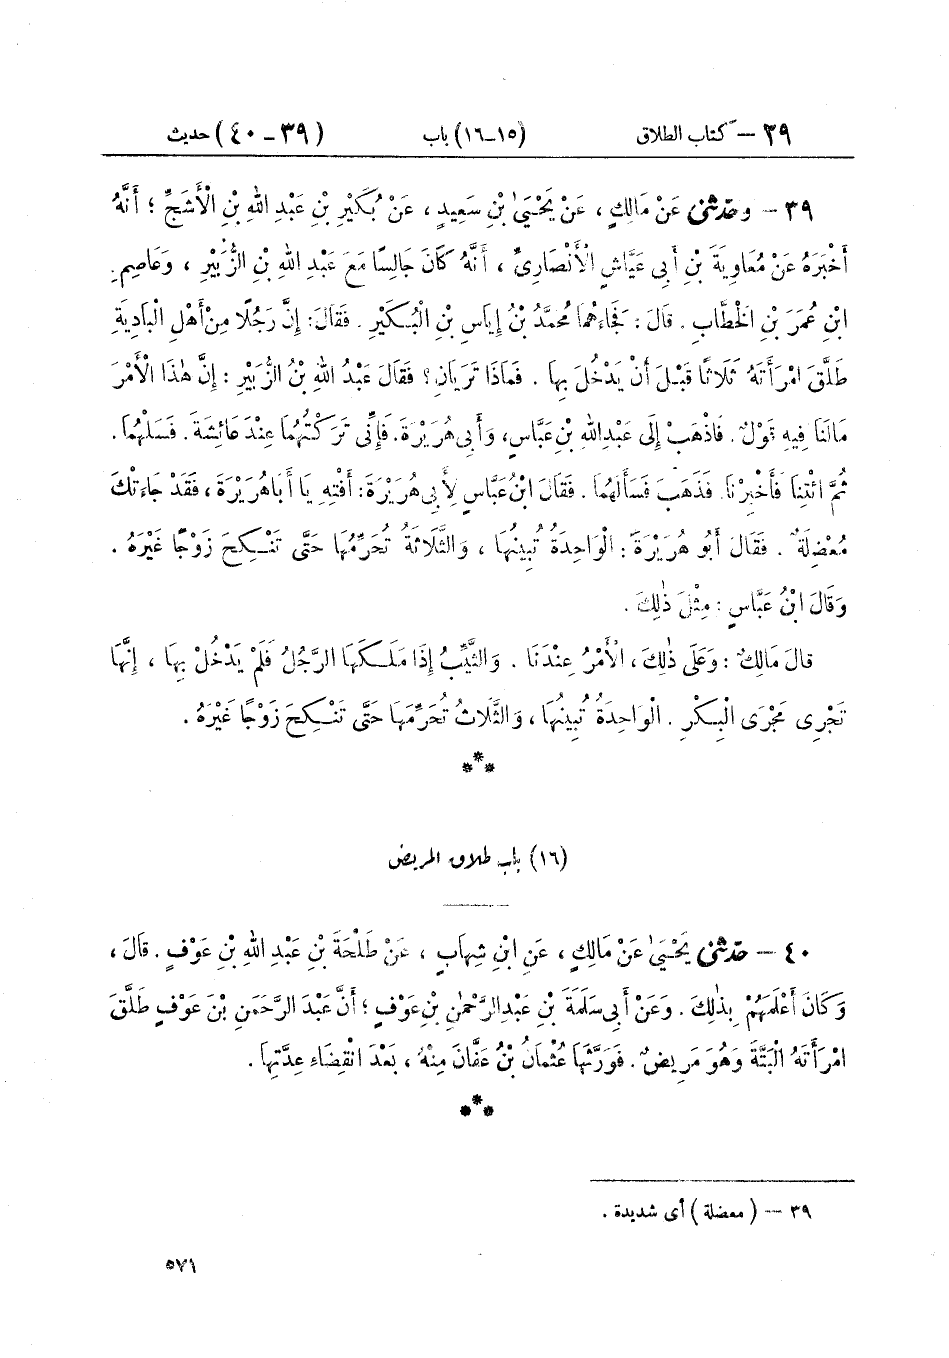 ٢٩ — كتاب الطلاق (١٥–١٦) باب (٣٩ – ٤٠) حديث
٣٩ — وحَدَّثَنِي عَنْ مَالِكٍ ، عَنْ يَحْيَىٰ بْنِ سَعِيدٍ ، عَنْ بُكَيْرِ بْنِ عَبْدِ اللهِ بْنِ الْأَشَجِّ ؛ أَنَّهُ
أَخْبَرَهُ عَنْ مُعَاوِيَةَ بْنِ أَبِي عَيَّاشٍ الْأَنْصَارِيِّ ، أَنَّهُ كَانَ جَالِسًا مَعَ عَبْدِ اللهِ بْنِ الزُّبَيْرِ ، وَعَاصِمِ
ابْنِ عُمَرَ بْنِ الخَطَّابِ . قَالَ : فَجَاءَهُمَا مُحَمَّدُ بْنُ إِيَاسِ بْنِ الْبُكَيْرِ . فَقَالَ : إِنَّ رَجُلًا مِنْ أَهْلِ الْبَادِيَةِ
طَلَّقَ امْرَأَتَهُ ثَلَاثًا قَبْلَ أَنْ يَدْخُلَ بِهَا . فَمَاذَا تَرَيَانِ ؟ فَقَالَ عَبْدُ اللهِ بْنُ الزُّبَيْرِ : إِنَّ هٰذَا الْأَمْرَ
مَالَنَا فِيهِ قَوْلٌ . فَاذْهَبْ إِلَى عَبْدِ اللهِ بْنِ عَبَّاسٍ، وَأَبِي هُرَيْرَةَ. فَإِنِّي تَرَكْتُهُمَا عِنْدَ عَائِشَةَ . فَسَلْهُمَا .
ثُمَّ ائْتِنَا فَأَخْبِرْنَا. فَذَهَبَ فَسَأَلَهُمَا . فَقَالَ ابْنُ عَبَّاسٍ لِأَبِي هُرَيْرَةَ: أَفْتِهِ يَا أَبَا هُرَيْرَةَ ، فَقَدْ جَاءَتْكَ
مُعْضِلَةٌ . فَقَالَ أَبُو هُرَيْرَةَ : الْوَاحِدَةُ تُبِينُهَا ، وَالثَّلَاثَةُ تُحَرِّمُهَا حَتَّى تَنْكِحَ زَوْجًا غَيْرَهُ .
وَقَالَ ابْنُ عَبَّاسٍ : مِثْلَ ذٰلِكَ .
قَالَ مَالِكٌ : وَعَلَى ذٰلِكَ، الْأَمْرُ عِنْدَنَا . وَالثَّيِّبُ إِذَا مَلَكَهَا الرَّجُلُ فَلَمْ يَدْخُلْ بِهَا ، إِنَّهَا
تَجْرِي مَجْرَى الْبِكْرِ . الْوَاحِدَةُ تُبِينُهَا ، وَالثَّلَاثُ تُحَرِّمُهَا حَتَّى تَنْكِحَ زَوْجًا غَيْرَهُ .
***
(١٦) باب طلاق المريض
٤٠ — حَدَّثَنِي يَحْيَىٰ عَنْ مَالِكٍ ، عَنِ ابْنِ شِهَابٍ ، عَنْ طَلْحَةَ بْنِ عَبْدِ اللهِ بْنِ عَوْفٍ . قَالَ ،
وَكَانَ أَعْلَمَهُمْ بِذٰلِكَ . وَعَنْ أَبِي سَلَمَةَ بْنِ عَبْدِ الرَّحْمٰنِ بْنِ عَوْفٍ ؛ أَنَّ عَبْدَ الرَّحْمَنِ بْنَ عَوْفٍ طَلَّقَ
امْرَأَتَهُ الْبَتَّةَ وَهُوَ مَرِيضٌ . فَوَرَّثَهَا عُثْمَانُ بْنُ عَفَّانَ مِنْهُ ، بَعْدَ انْقِضَاءِ عِدَّتِهَا .
***
٣٩ — ( معضلة ) أى شديدة .
٥٧١